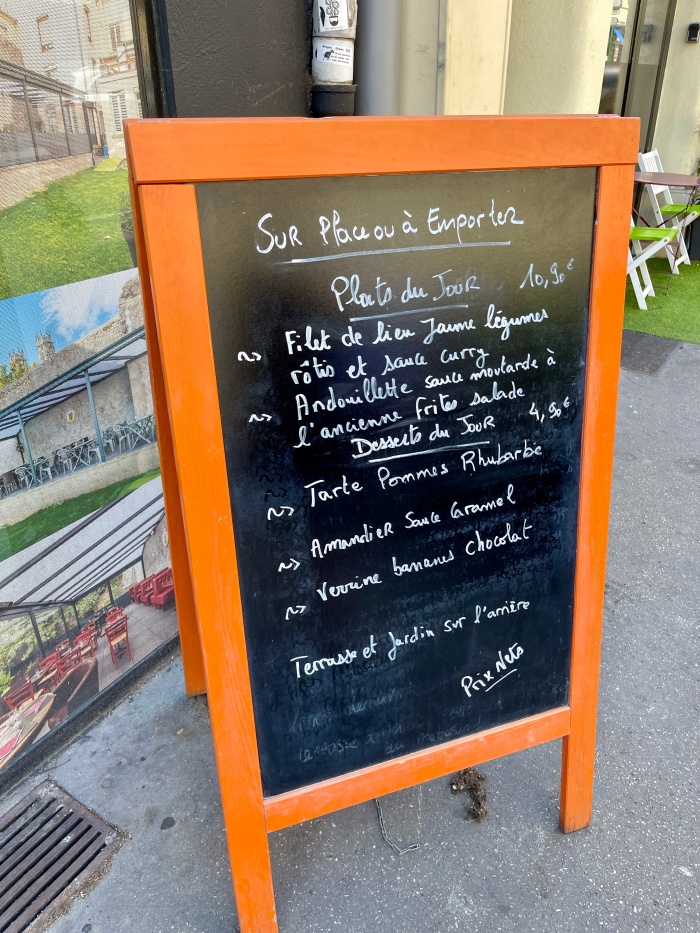 SUR Place ou à Emporter
Plats du Jour 10,90€
~> Filet de lieu Jaume légumes
rôtis et sauce curry
~> Andouillette sauce moutarde à
l'ancienne frites salade
Desserts du Jour 4,90€
~> Tarte Pommes Rhubarbe
~> Amandier Sauce Caramel
~> Verrine bananes chocolat
Terrasse et Jardin sur l'arrière
Prix Nets